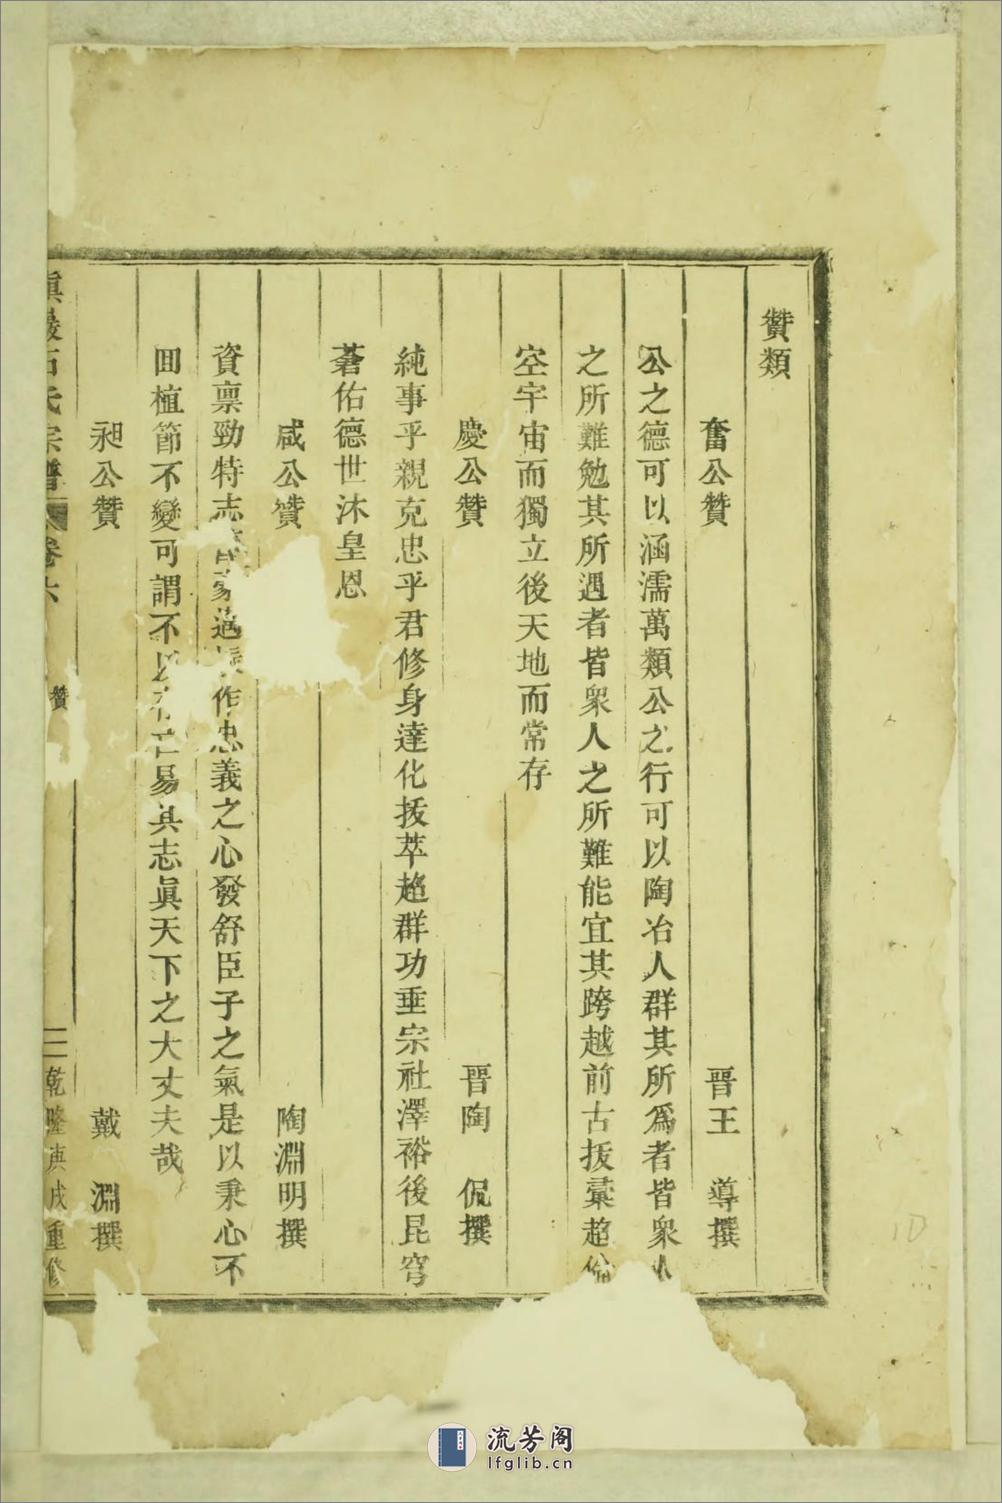 贊類
奮公贊 晉王 導撰
公之德可以涵濡萬類公之行可以陶冶人群其所爲者皆衆人
之所難勉其所遇者皆衆人之所難能宜其跨越前古拔彙超倫
空宇宙而獨立後天地而常存
慶公贊 晉陶 侃撰
純事乎親克忠乎君修身達化拔萃超群功垂宗社澤裕後昆穹
蒼佑德世沐皇恩
咸公贊 陶淵明撰
資禀勁特志 作忠義之心發舒臣子之氣是以秉心不
囬植節不變可謂不以存亡易其志眞天下之大丈夫哉
昶公贊 戴 淵撰
石氏宗譜 卷六 贊 三 乾隆庚戌重修
流芳阁
lfglib.cn